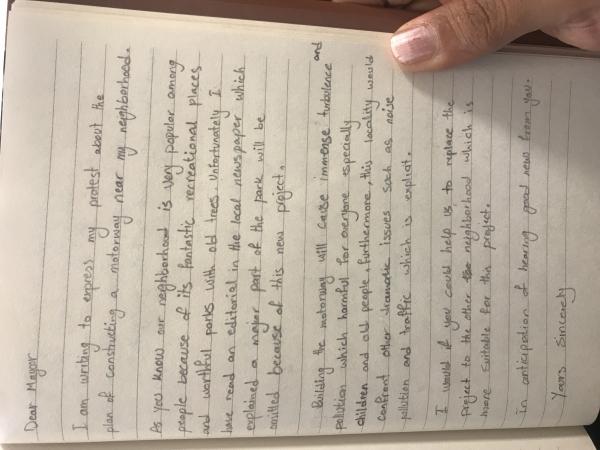 Dear Mayor
I am writing to express my protest about the
plan of constructing a motorway near my neighborhood.
As you know our neighborhood is very popular among
people because of its fantastic recreational places
and worthful parks with old trees. Unfortunately I
have read an editorial in the local newspaper which
explained a major part of the park will be
omitted because of this new project.
Building the motorway will cause immense turbulence and
pollution which harmful for everyone especially
children and old people, furthermore, this locality would
confront other dramatic issues such as noise
pollution and traffic which is explicit.
I would if you could help us to replace the
project to the other neighborhood which is
more suitable for this project.
in anticipation of hearing good news from you.
Yours Sincerely